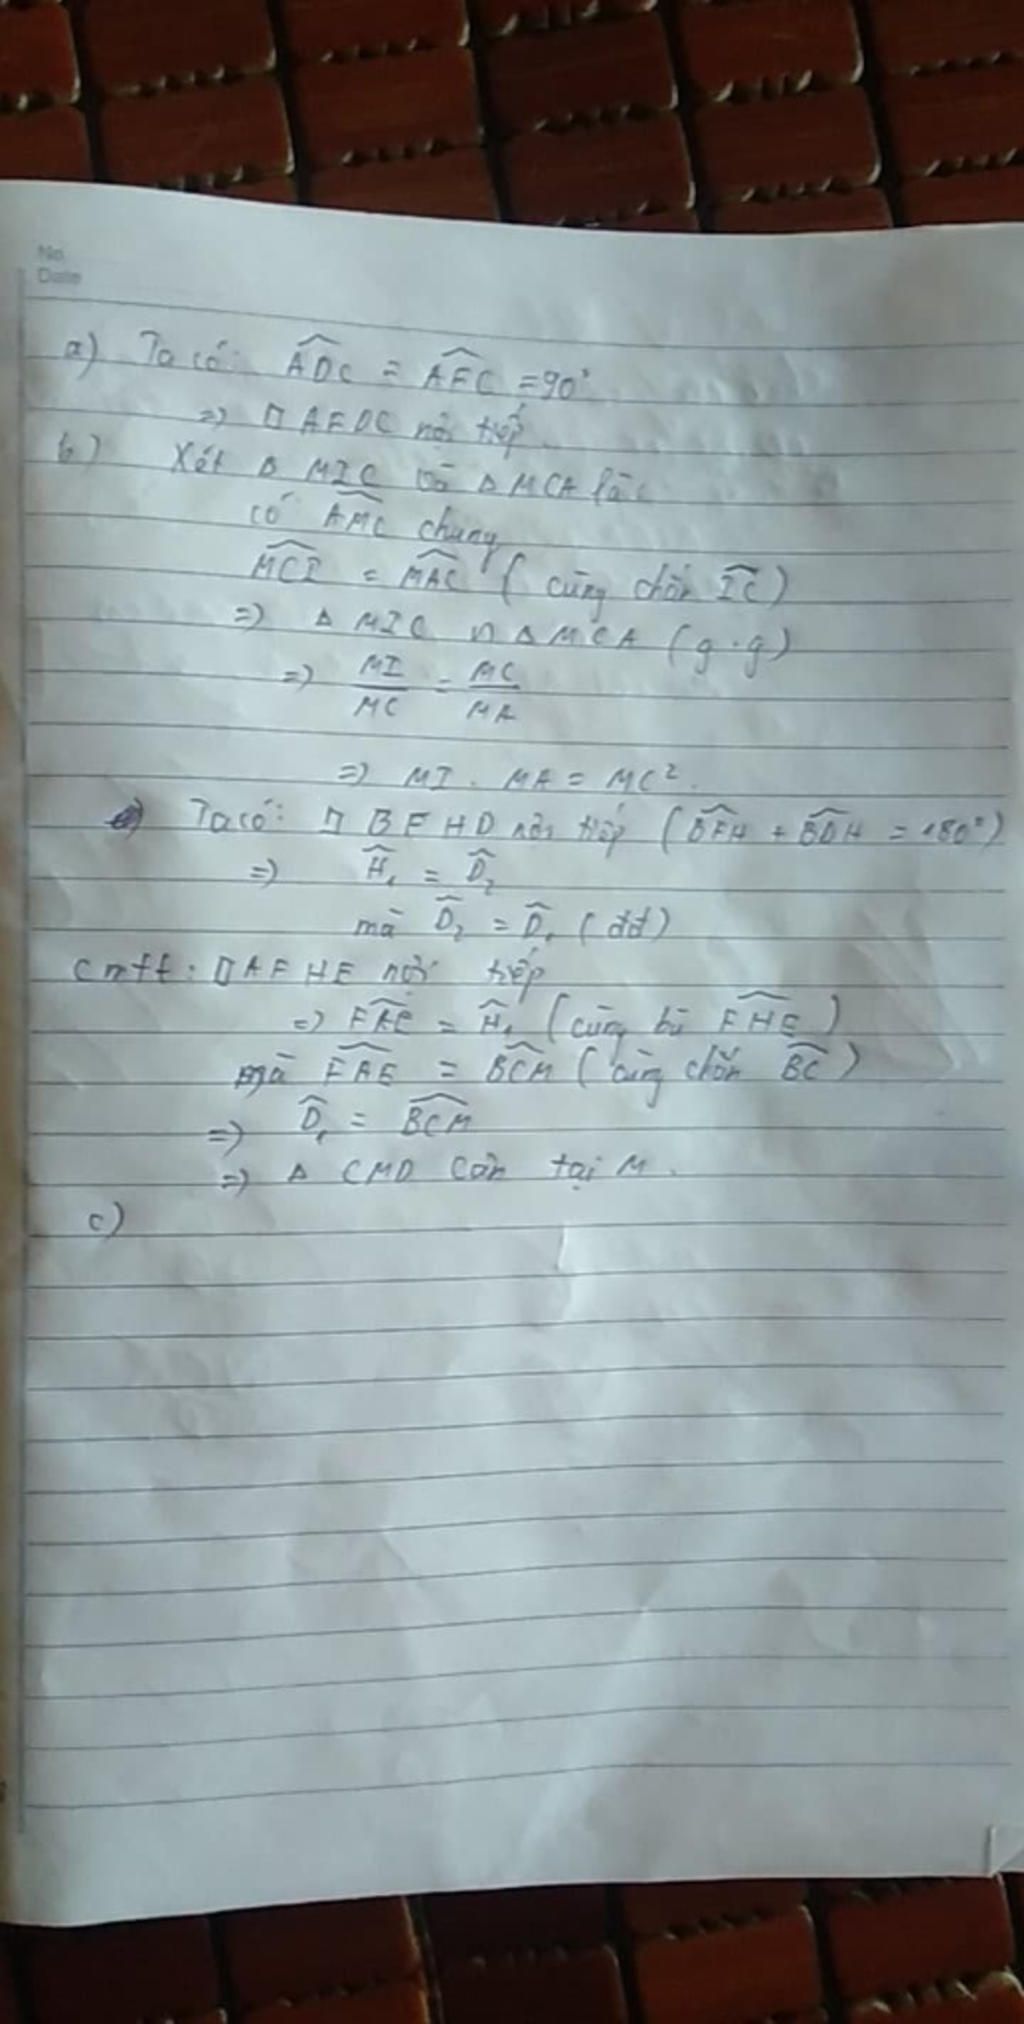 No
Date
a) Ta có: ADC = AFC = 90°
=> □ AFDC nội tiếp
b) Xét Δ MIC và Δ MCA
có AMC chung
MCI = MAC ( cùng chắn IC )
=> Δ MIC ∽ Δ MCA ( g.g )
=> MI/MC = MC/MA
=> MI . MA = MC².
Ta có: □ BFHD nội tiếp ( BFH + BDH = 180° )
=> H₁ = D₂
mà D₂ = D₁ ( đđ )
cmtt : □ AFHE nội tiếp
=> FAE = H₁ ( cùng bù FHE )
mà FAE = BCM ( cùng chắn BC )
=> D₁ = BCM
=> Δ CMD cân tại M.
c)